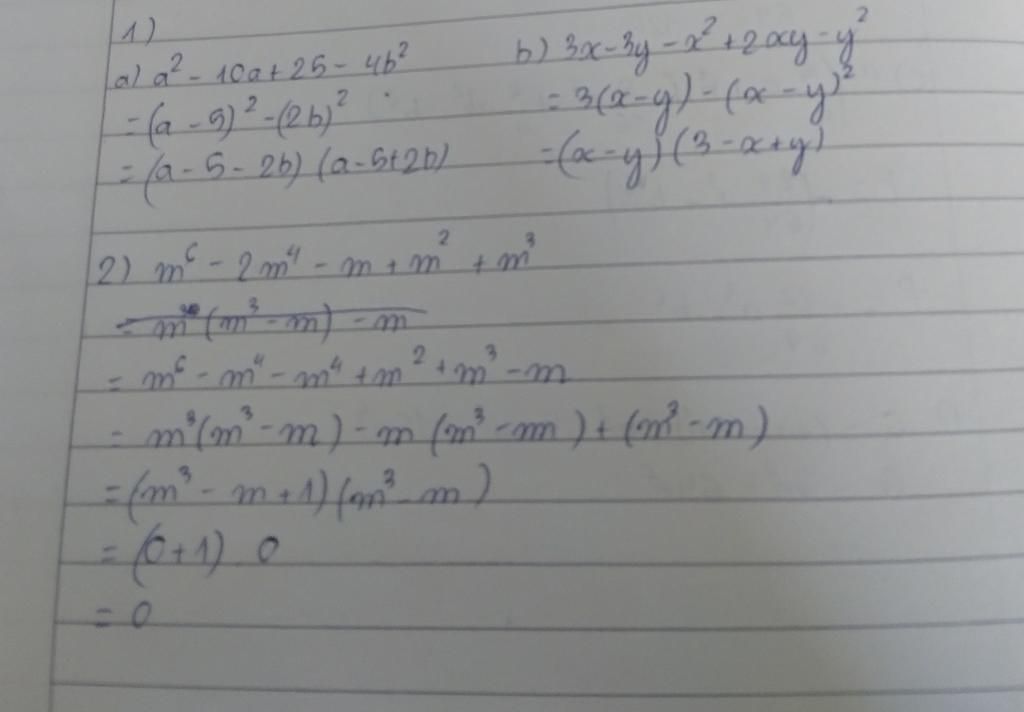 1)
a) a² - 10a + 25 - 4b²
= (a - 5)² - (2b)²
= (a - 5 - 2b) (a - 5 + 2b)
b) 3x - 3y - x² + 2xy - y²
= 3(x - y) - (x - y)²
= (x - y) (3 - x + y)
2) m⁶ - 2m⁴ - m + m² + m³
= m³(m³ - m) - m
= m⁶ - m⁴ - m⁴ + m² + m³ - m
= m³(m³ - m) - m (m³ - m) + (m³ - m)
= (m³ - m + 1) (m³ - m)
= (0 + 1) . 0
= 0